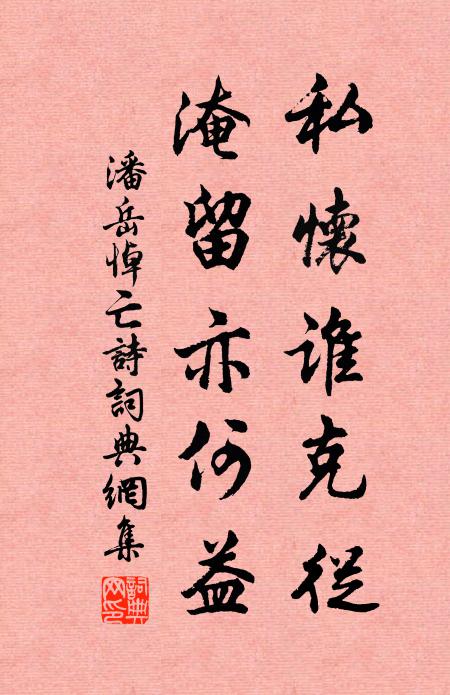 私懷誰克從
淹留亦何益
潘岳悼亡詩詞典網集
詞典網印